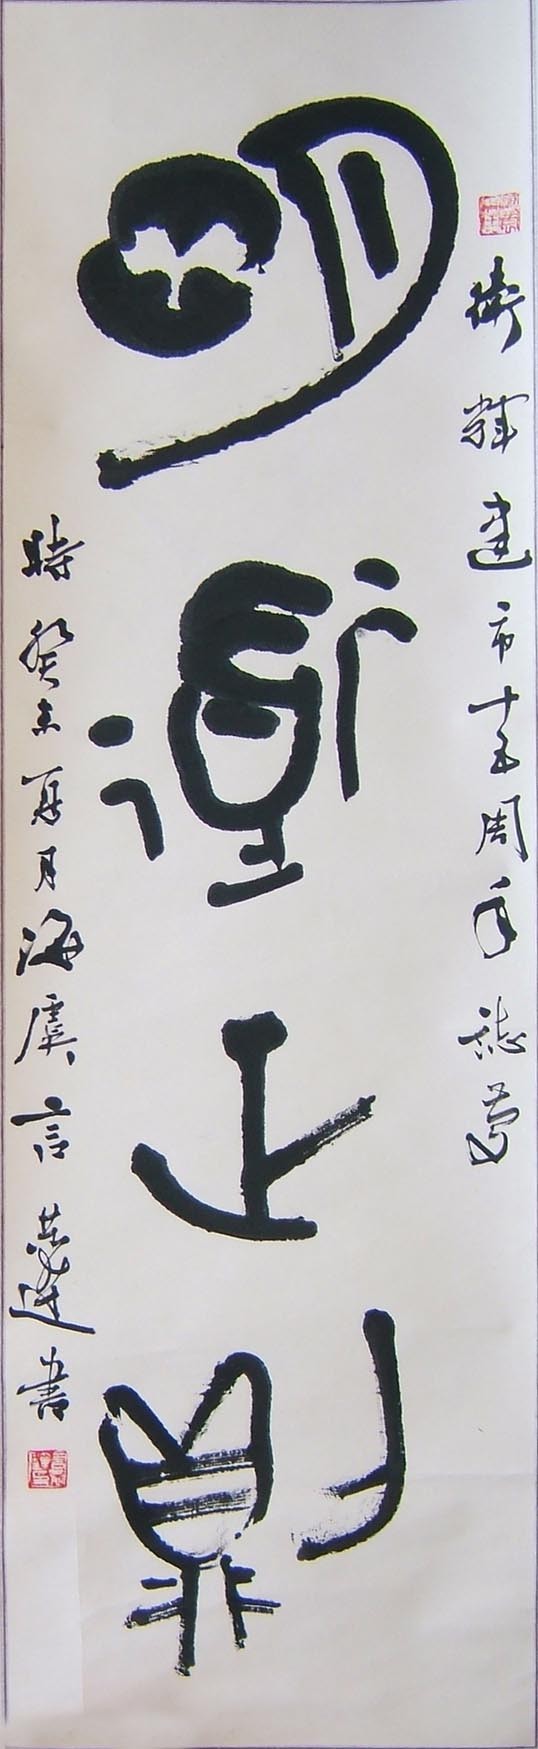 衛輝建市十五周年誌慶
明道則
時癸未夏月海虞言恭達書